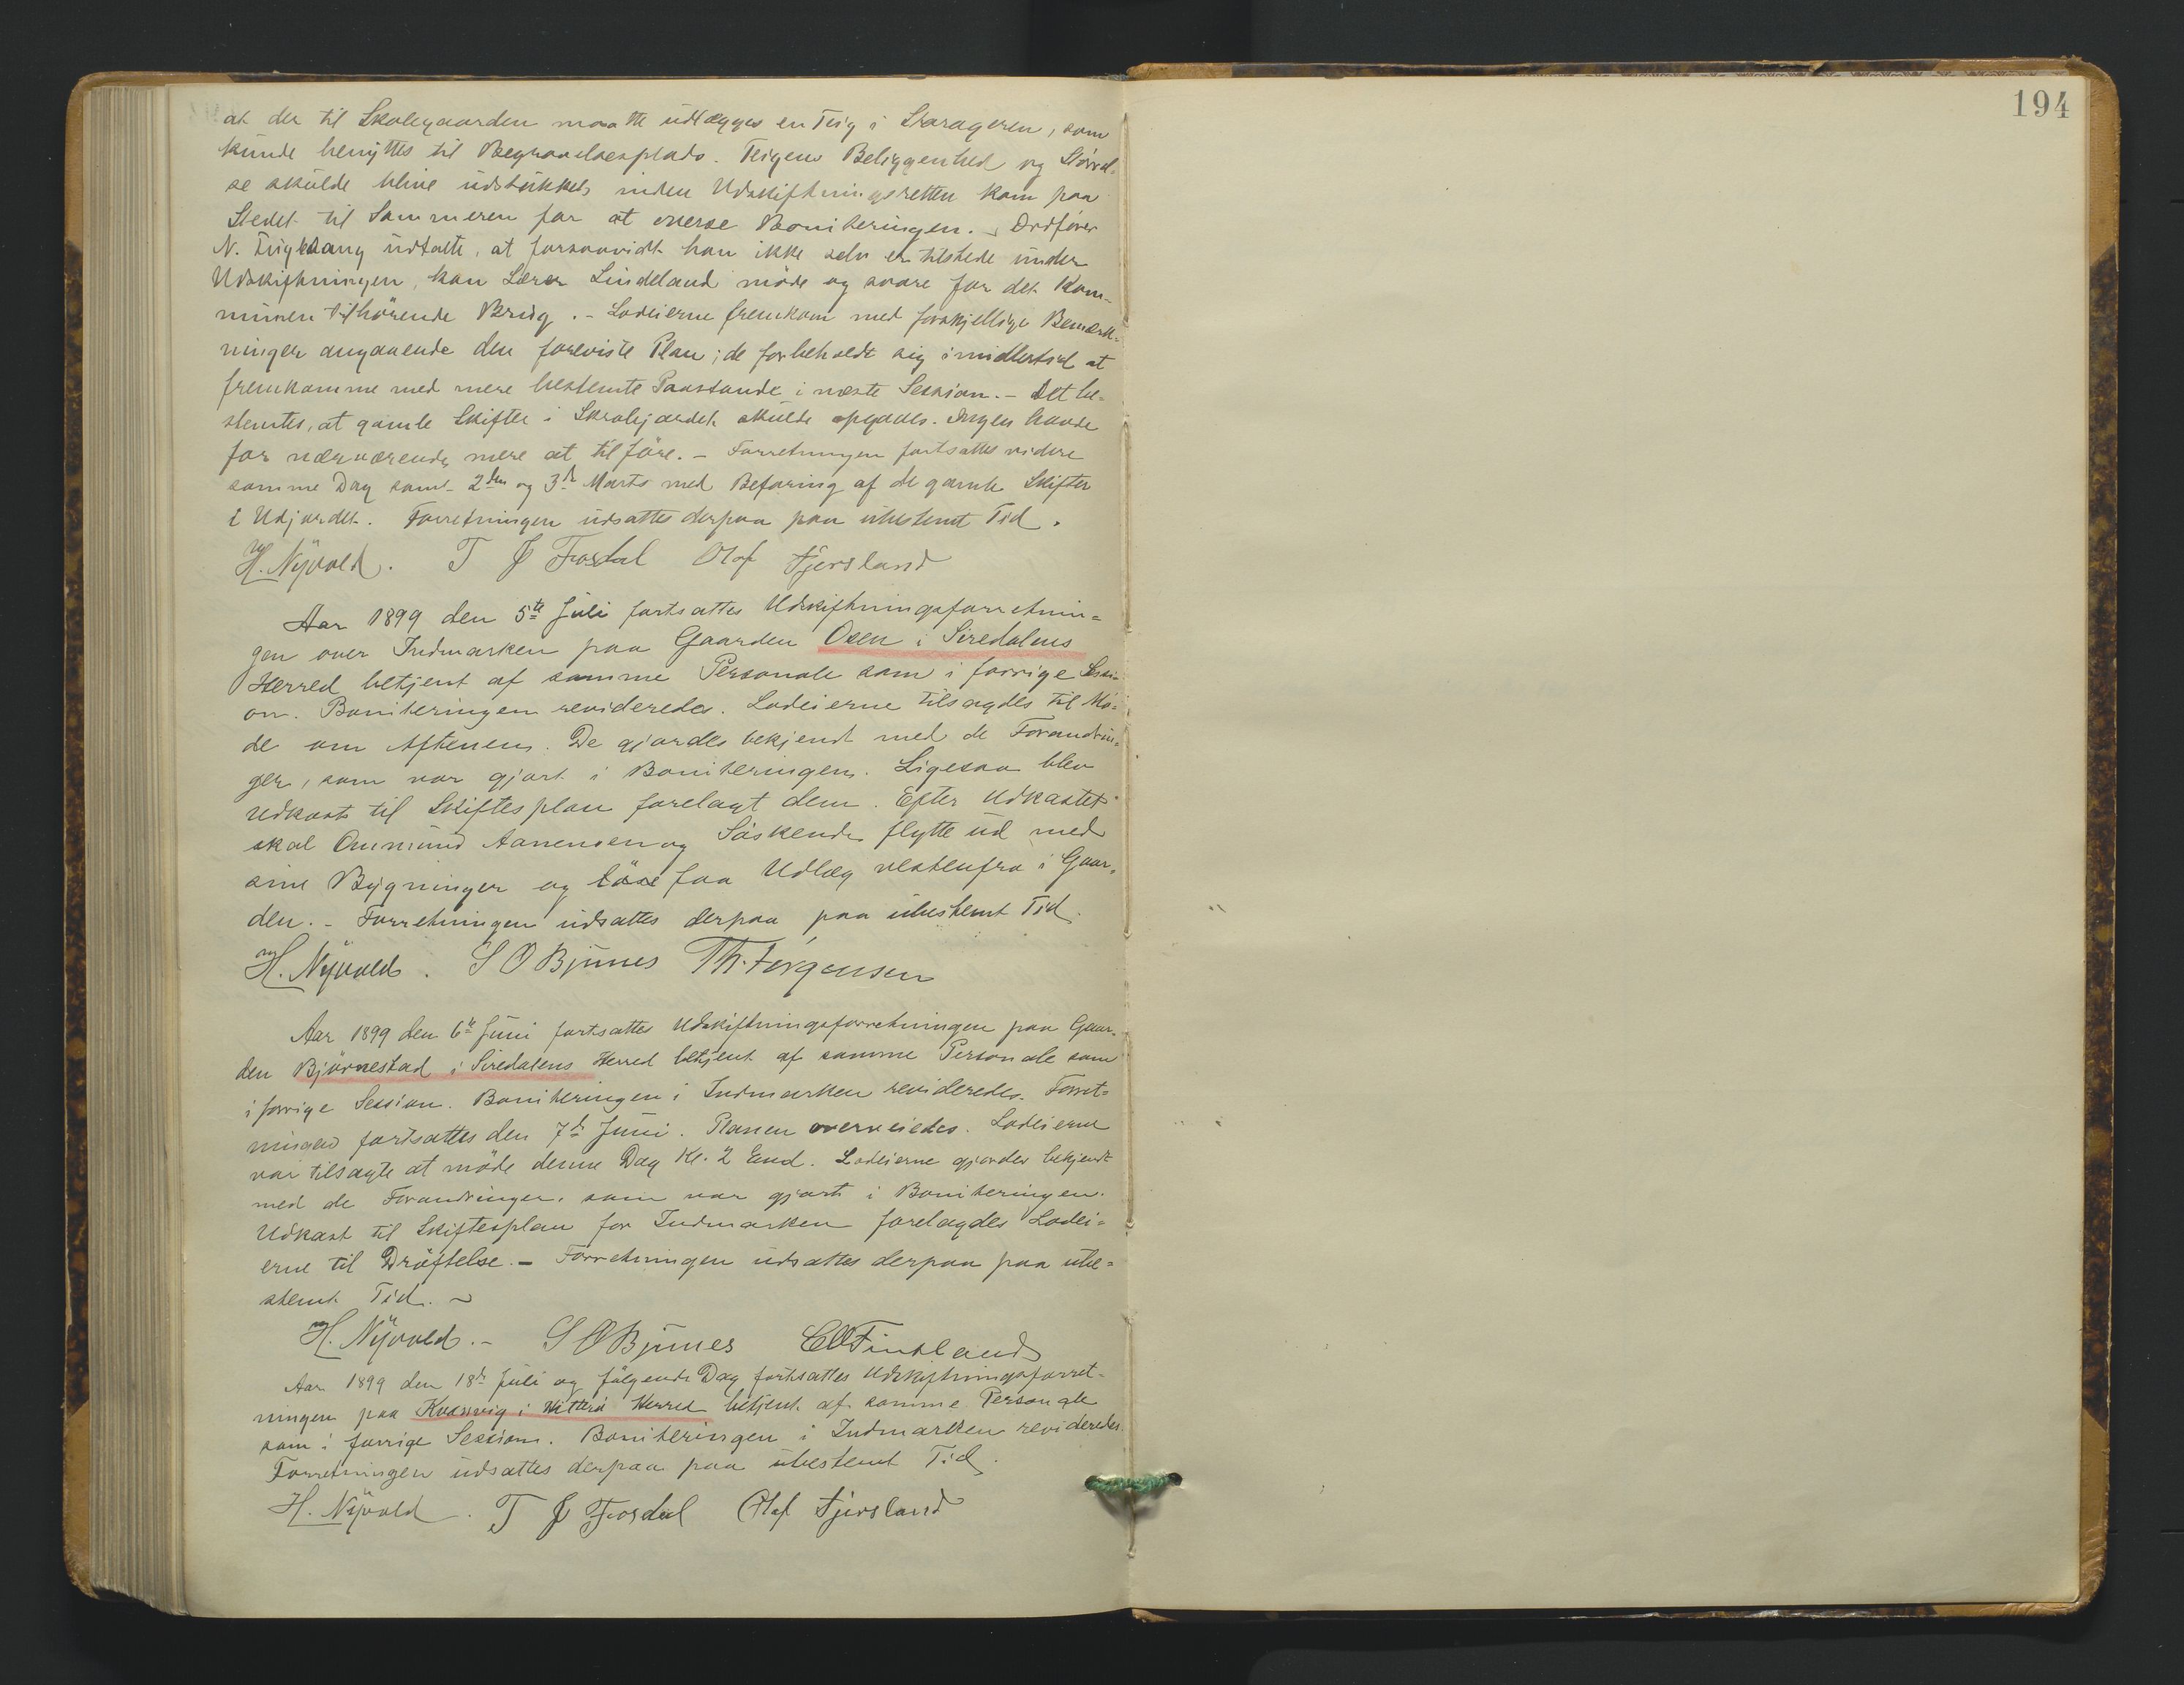 194
at der til Skolegaarden maatte udlægges en Teig i Skrageren, som
kunde benyttes til Begravelsesplads. Teigens Beliggenhed og Størrel-
se skulde blive udstukket, inden Udskiftningsretten kom paa
Stedet til Sommeren for at overse Boniteringen. - Ordfører
N. udtalte, at forsaavidt han ikke selv er tilstede under
Udskiftningen, kan Lærer Lindeland møde og svare for det Kom-
munen tilhørende Brug. - Lodeierne fremkom med forskjellige Bemærk-
ninger angaaende den foreviste Plan; de forbeholdt sig imidlertid at
fremkomme med mere bestemte Paastande i næste Session. - Det be-
stemtes, at gamle Skifter i skulde opgaaes. Ingen havde
for nærværende mere at tilføre. - Forretningen fortsattes videre
samme Dag samt 2den og 3de Marts med Befaring af de gamle Skifter
i Udjordet. Forretningen udsattes derpaa paa ubestemt Tid.
H. Nyvold. T J Fosdal Olaf Fjersland
Aar 1899 den 5te Juli fortsattes Udskiftningsforretnin=
gen over Indmarken paa Gaarden Osen i Siredalens
Herred betjent af samme Personale som i forrige Sessi-
on. Boniteringen revideredes. Lodeierne tilsagdes til Mö-
de om Aftenen. De gjordes bekjendt med de Forandrin-
ger, som var gjort i Boniteringen. Ligesaa blev
Udkast til Skiftesplan forelagt dem. Efter Udkastet
skal Ommund Aanensen og Söskende flytte ud med
sine Bygninger og faa Udlæg vestenfra i Gaar-
den. - Forretningen udsattes derpaa paa ubestemt Tid.
H. Nyvold. S O Bjunes Th. Jörgensen
Aar 1899 den 6te Juni fortsattes Udskiftningsforretningen paa Gaar-
den Bjørnestad i Siredalens Herred betjent af samme Personale som
i forrige Session. Boniteringen i Indmarken revideredes. Forret=
ningen fortsattes den 7de Juni. Planen overveiedes. Lodeierne
var tilsagte at möde denne Dag Kl. 2 Emd. Lodeierne gjordes bekjendt
med de Forandringer, som var gjort i Boniteringen.
Udkast til Skiftesplan for Indmarken forelagdes Lodei=
erne til Dröftelse. - Forretningen udsattes derpaa paa ube=
stemt Tid. ~
H. Nyvold. - S O Bjunes E O Fintland
Aar 1899 den 18de Juli og fölgende Dag fortsattes Udskiftningsforret-
ningen paa Kvanvig i Hitterö Herred betjent af samme Personale
som i forrige Session. Boniteringen i Indmarken revideredes.
Forretningen udsattes derpaa paa ubestemt Tid.
H. Nyvold. T J Fosdal Olaf Fjersland